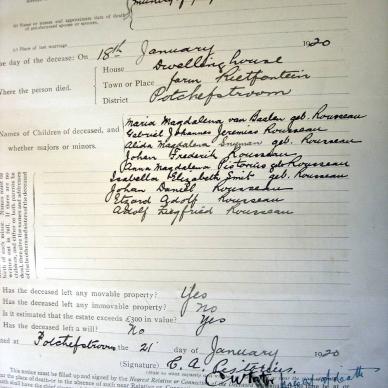 (b) Name or names and approximate date of death of pre-deceased spouse or spouses.
(c) Place of last marriage
The day of the decease: On 18th January 1920
House Dwelling house
Where the person died. Town or Place farm Rietfontein
District Potchefstroom
Names of Children of deceased, and whether majors or minors.
Maria Magdalena van Aarden geb. Rousseau
Gabriel Johannes Jeremias Rousseau
Alida Magdalena Snyman geb. Rousseau
Johan Frederik Rousseau
Anna Magdalena Pistorius geb Rousseau
Isabella Elizabeth Smit geb. Rousseau
Johan Daniel Rousseau
Etzard Adolf Rousseau
Adolf Siegfried Rousseau
Has the deceased left any movable property? Yes
Has the deceased left any immovable property? No
Is it estimated that the estate exceeds £300 in value? Yes
Has the deceased left a will? No
Dated at Potchefstroom the 21 day of January 1920
(Signature) C. A. Pistorius
date of death
This notice must be filled up and signed by the Nearest Relative or Connection